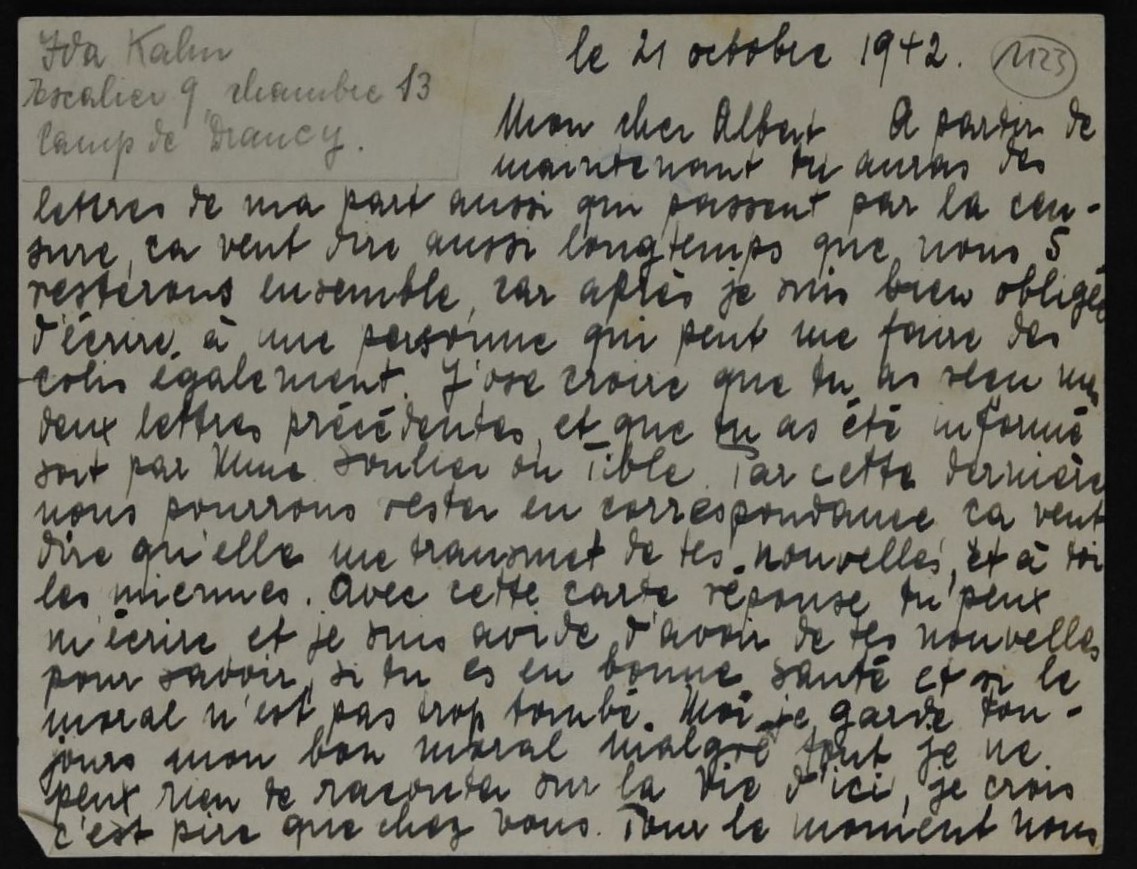 Ida Kahn
Escalier 9 chambre 13
Camp de Drancy.
le 21 octobre 1942.
1123
Mon cher Albert A partir de
maintenant tu auras des
lettres de ma part aussi qui passent par la cen-
sure, ça veut dire aussi longtemps que nous 5
resterons ensemble, car après je suis bien obligée
d'écrire à une personne qui peut me faire des
colis également. J'ose croire que tu as reçu mes
deux lettres précédentes, et que tu as été informé
soit par Mme Soulier ou Tible. Par cette dernière
nous pourrons rester en correspondance ça veut
dire qu'elle me transmet de tes nouvelles, et à toi
les miennes. Avec cette carte réponse tu peux
m'écrire et je suis avide d'avoir de tes nouvelles
pour savoir, si tu es en bonne santé et si le
moral n'est pas trop tombé. Moi je garde tou-
jours mon bon moral malgré tout je ne
peux rien te raconter sur la vie d'ici, je crois
c'est pire que chez vous. Pour le moment nous